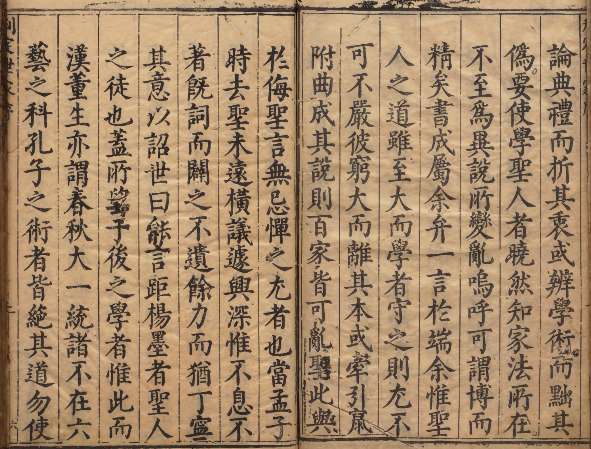 論典禮而折其衷或辨學術而黜其
僞要使學聖人者曉然知家法所在
不至爲異說所變亂嗚呼可謂博而
精矣書成屬余弁一言於端余惟聖
人之道雖至大而學者守之則尤不
可不嚴彼窮大而離其本或牽引
附曲成其說則百家皆可亂聖此與
於侮聖言無忌憚之尤者也當孟子
時去聖未遠橫議遽興深惟不息不
著旣詞而闢之不遺餘力而猶丁寧
其意以詔世曰能言距楊墨者聖人
之徒也蓋所望于後之學者惟此而
漢董生亦謂春秋大一統諸不在六
藝之科孔子之術者皆絕其道勿使